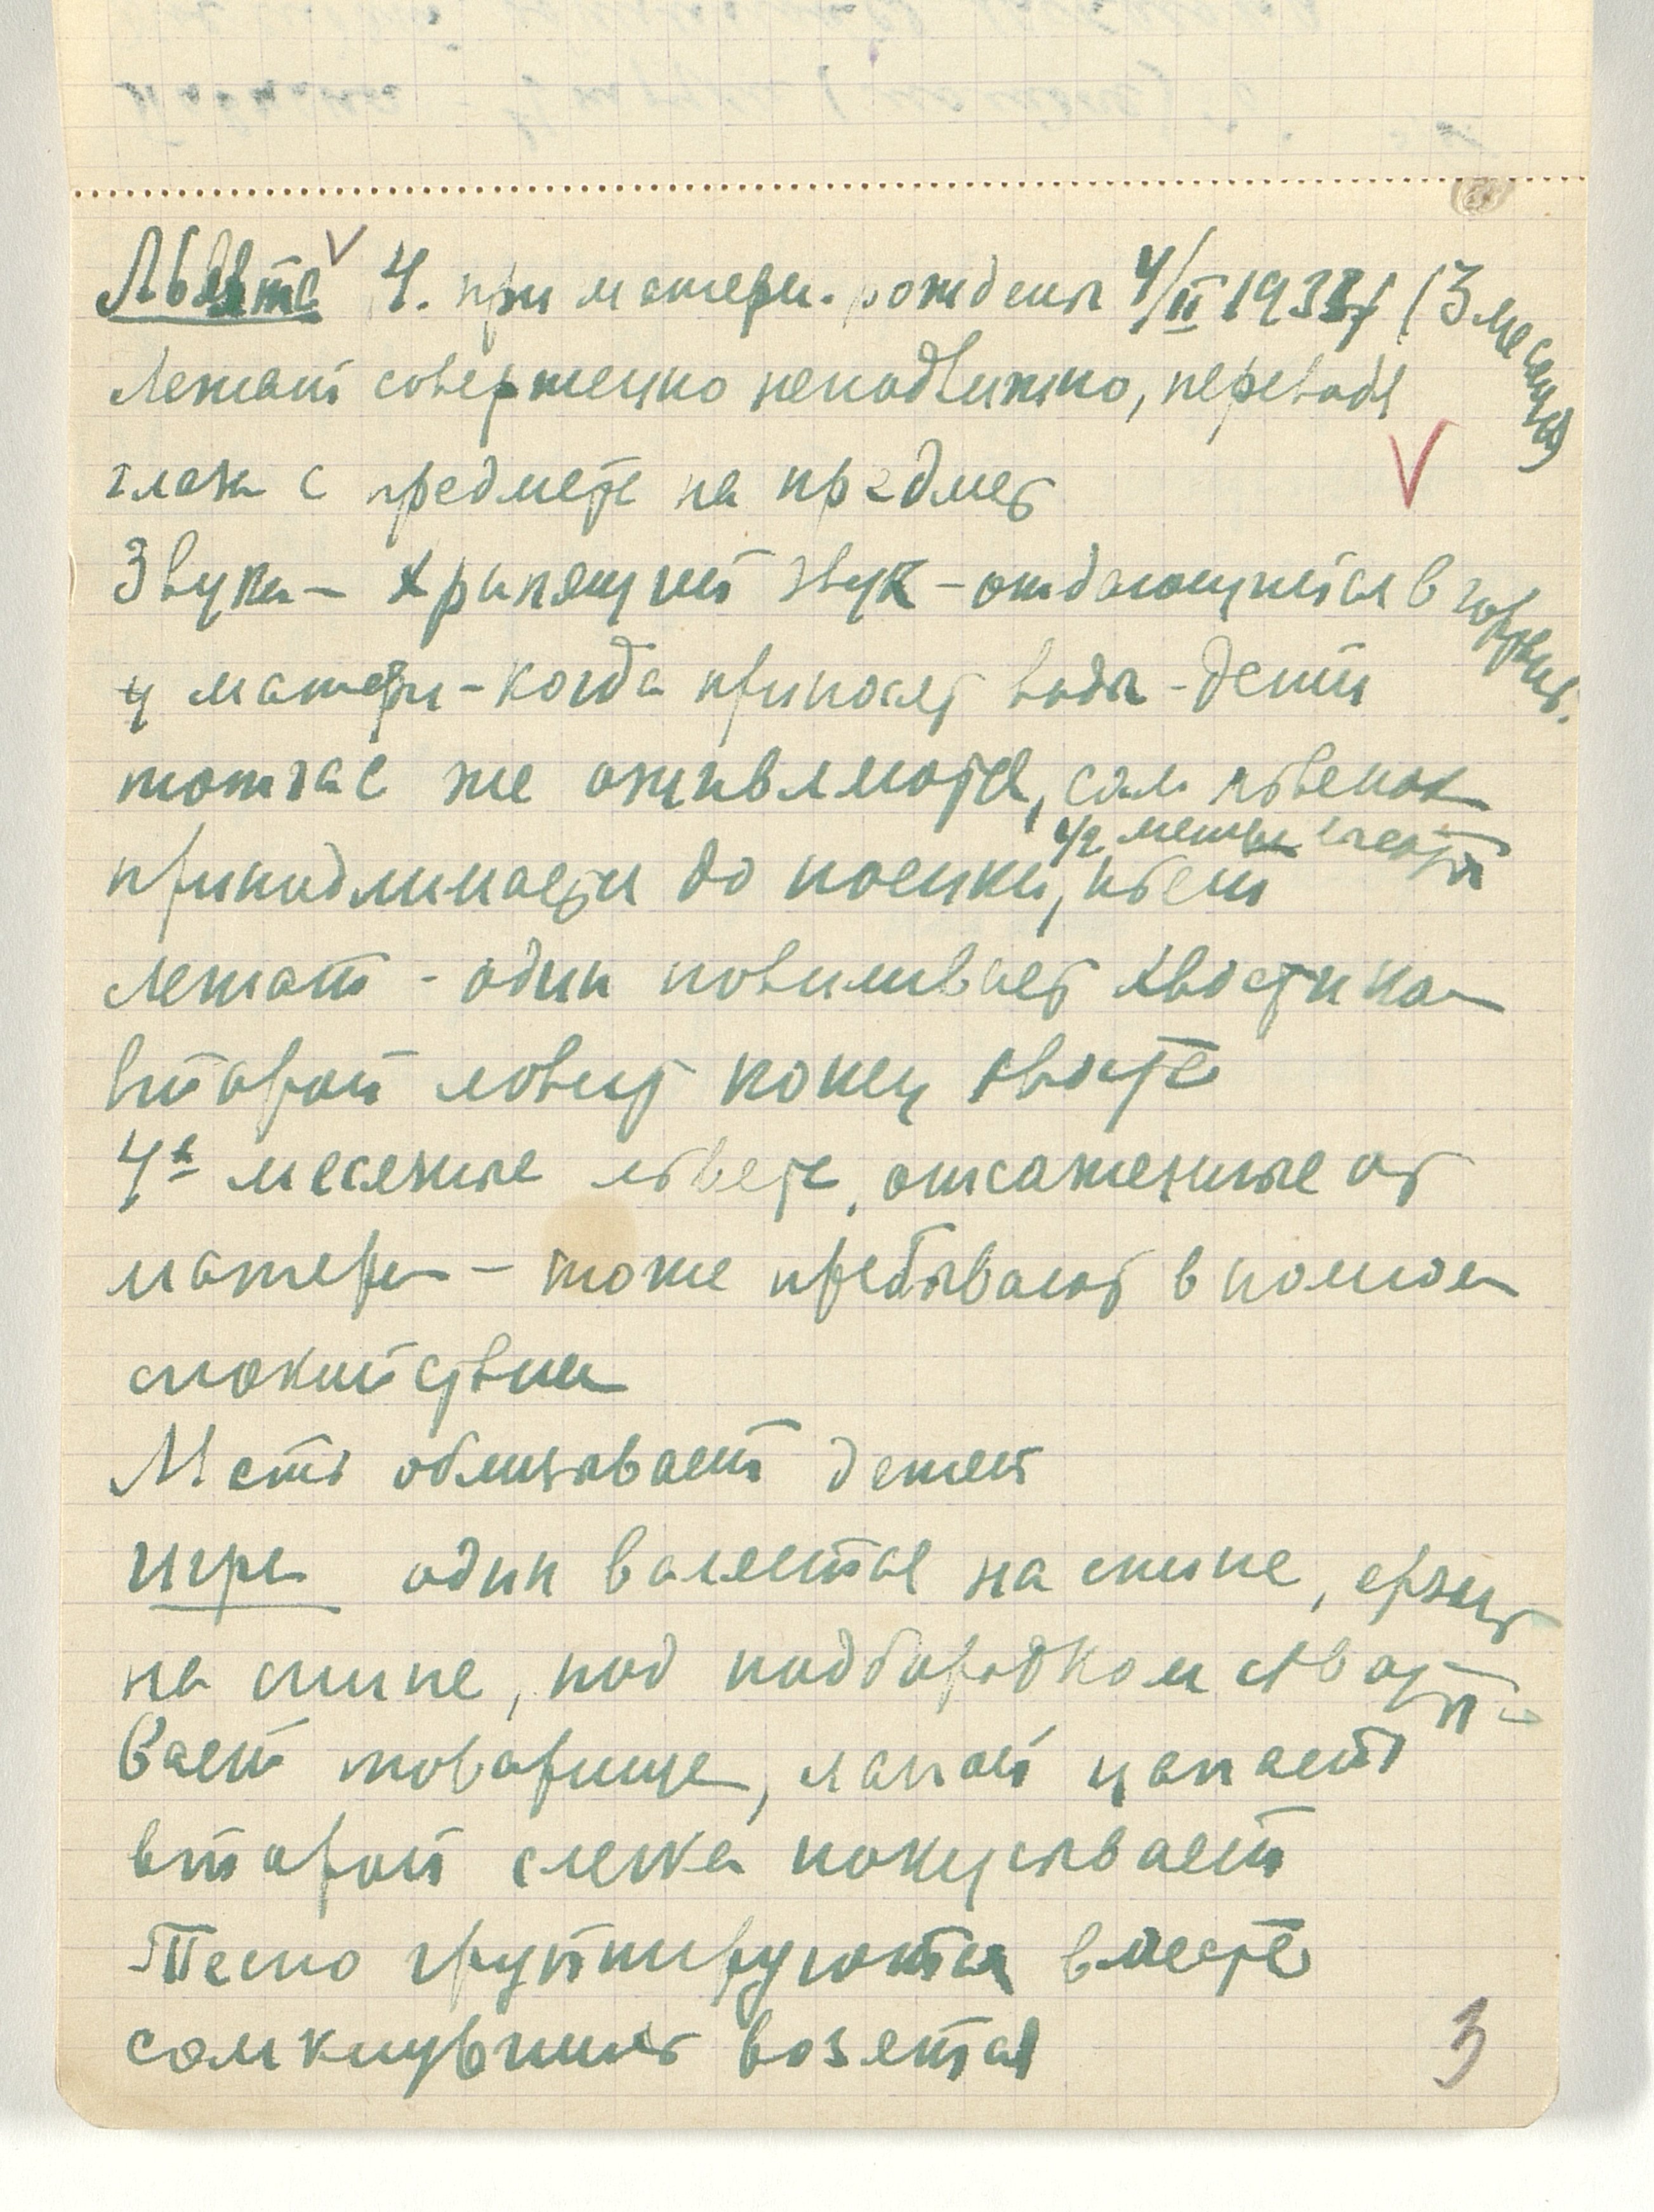 Львята 4. при матери. рождены 4/II 193 (3 месяца)
Лежат совершенно неподвижно, переводя
глаза с предмета на предмет
Звуки – хрипящий звук – отдающийся в
у матери – когда приносят воды – дети
тотчас же оживляются, сам львенок
1/2 метра
приподнимается до
лежат – один повиливает хвостиком
второй ловит конец хвоста
4х месячные львята, отсаженные от
матери – тоже пребывают в полном
спокойствии
Мать облизывает детей
Игра один валяется на спине, ерзает
на спине, под подбородком схваты-
вает товарища, лапой цапает
второй слегка покусывает
Тесно группируются вместе
сомкнувшись возятся
3